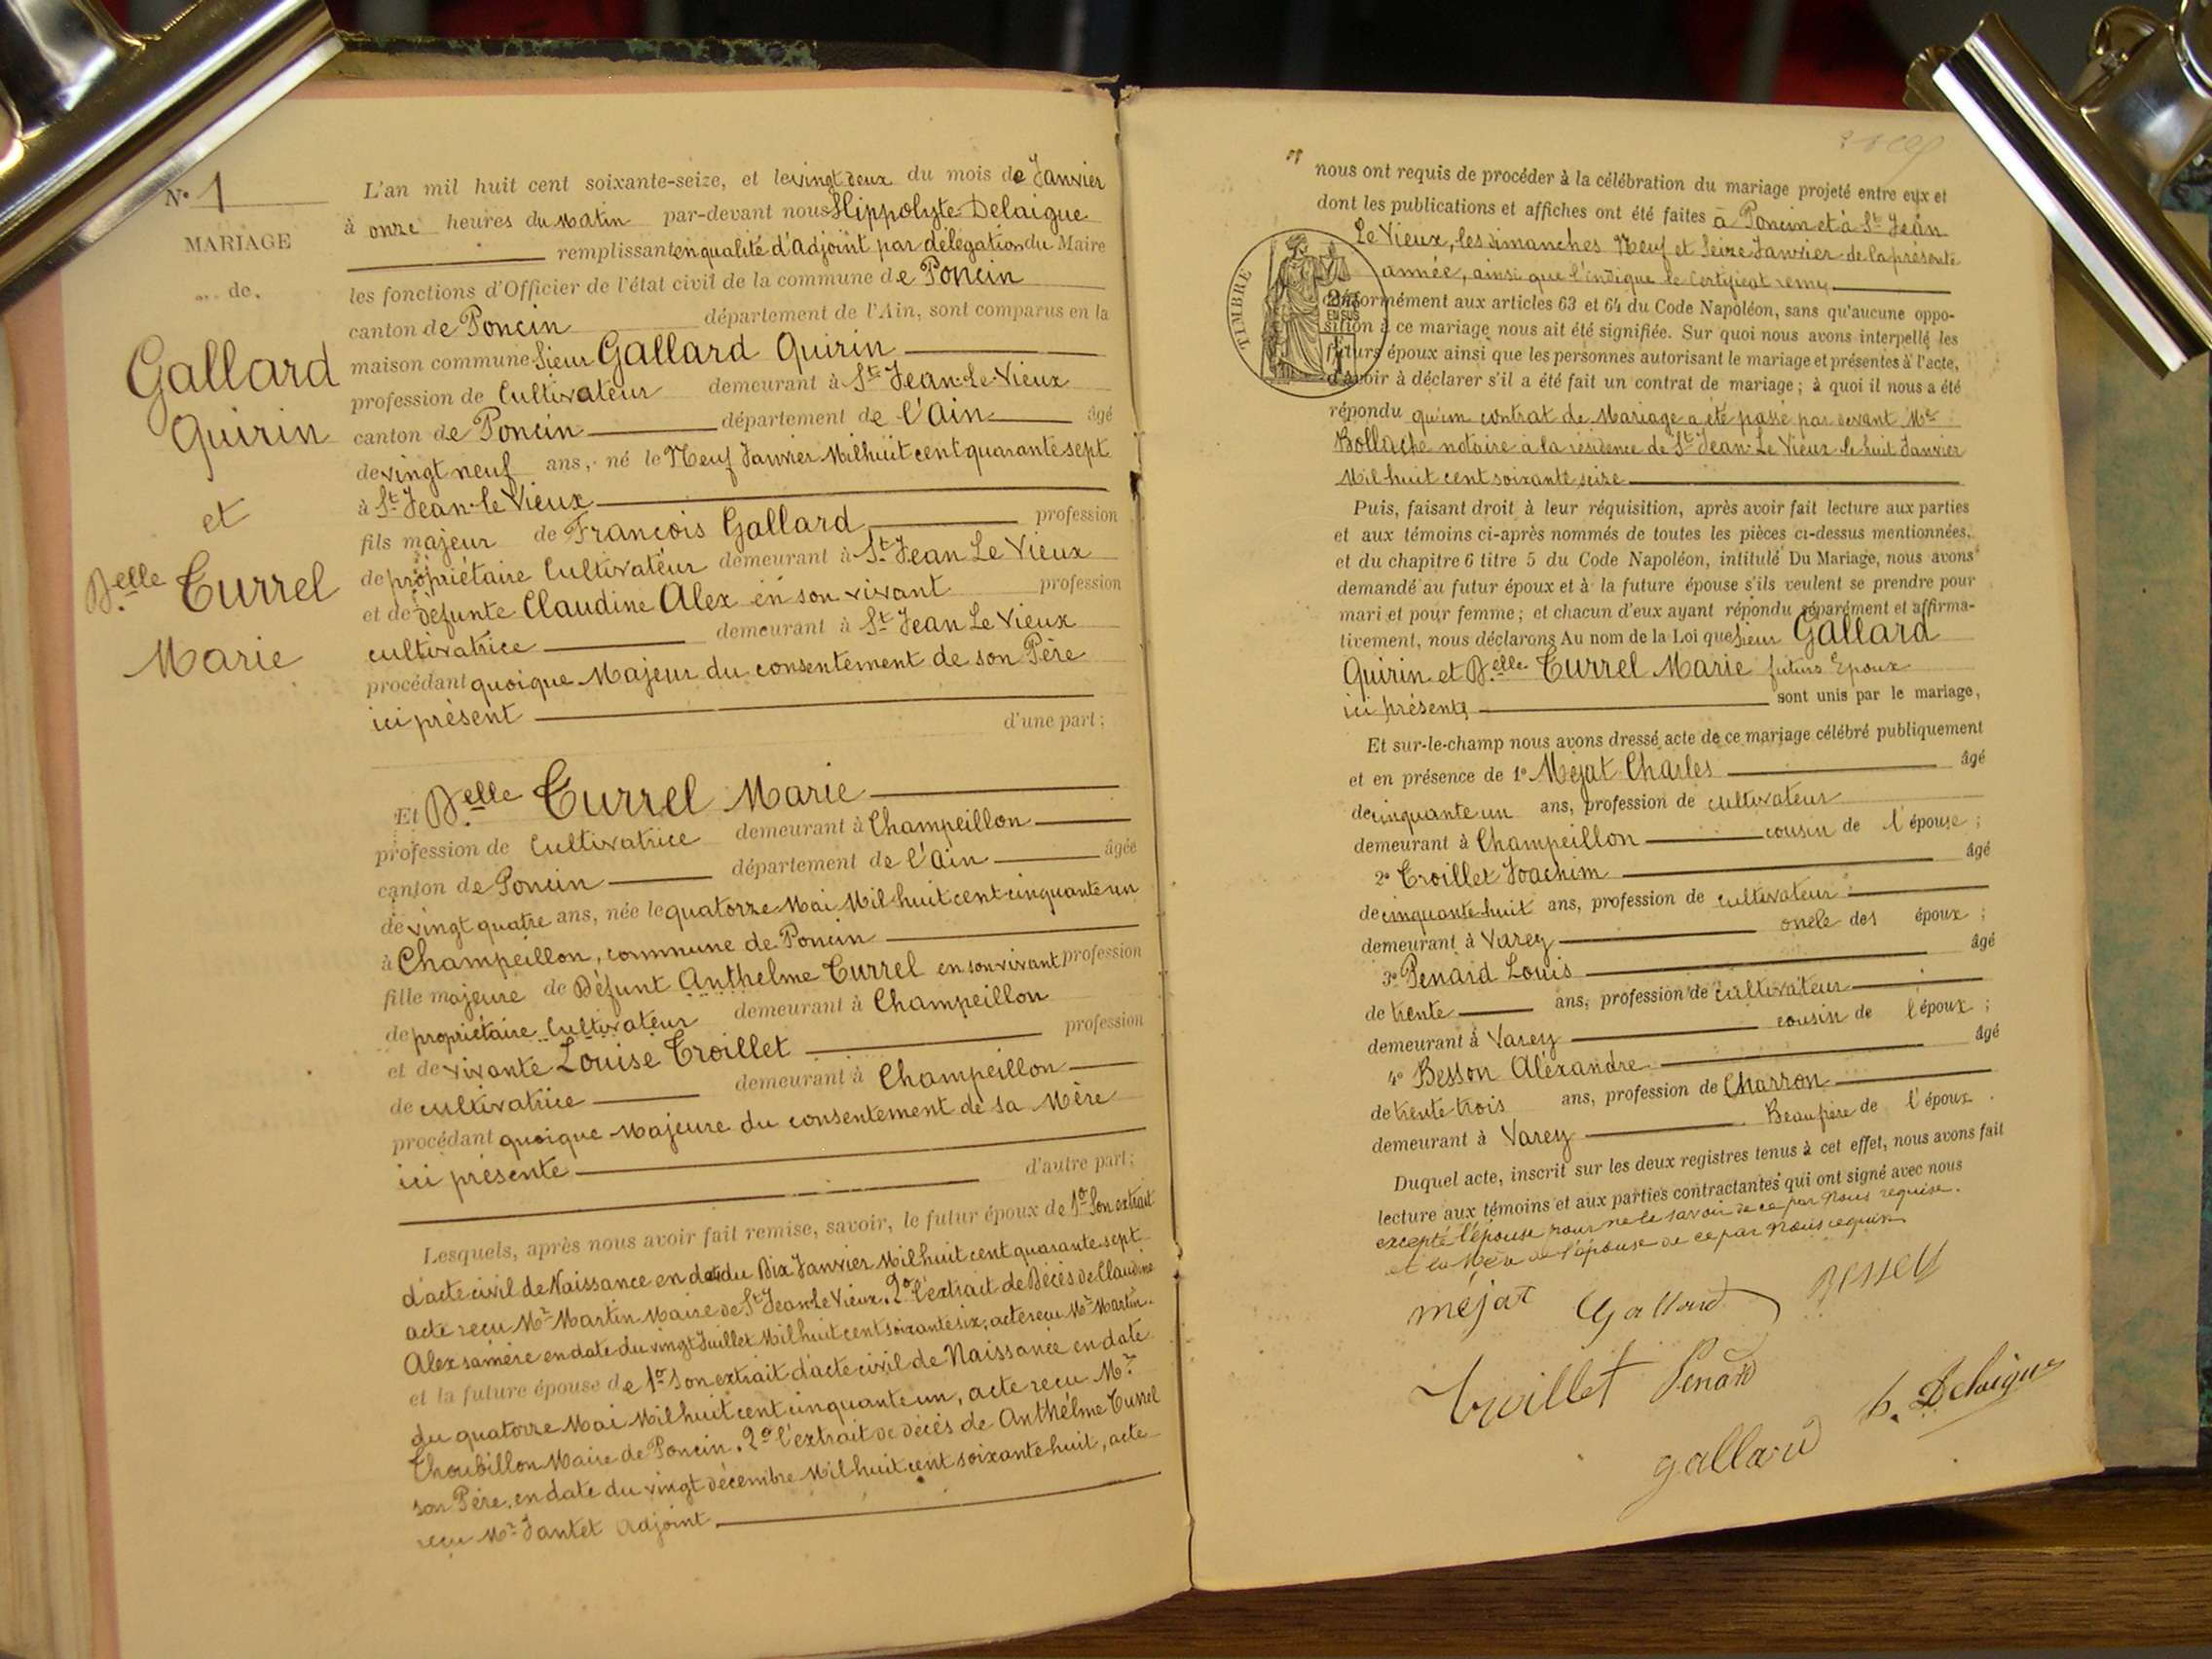 N° 1
MARIAGE
de
Gallard
Quirin
et
D.elle Turrel
Marie
L'an mil huit cent soixante-seize, et le vingt deux du mois de Janvier
à onze heures du Matin par-devant nous Hippolyte Delaigue
remplissant en qualité d'adjoint par délégation du Maire
les fonctions d'Officier de l'état civil de la commune de Poncin
canton de Poncin département de l'Ain, sont comparus en la
maison commune Sieur Gallard Quirin
profession de Cultivateur demeurant à St Jean-Le-Vieux
canton de Poncin département de l'Ain âgé
de vingt neuf ans, né le Neuf Janvier Mil huit cent quarante sept
à St Jean-le Vieux
fils majeur de François Gallard profession
de propriétaire Cultivateur demeurant à St Jean Le Vieux
et de défunte Claudine Alex en son vivant profession
cultivatrice demeurant à St Jean Le Vieux
procédant quoique Majeur du consentement de son Père
ici présent
d'une part;
Et D.elle Turrel Marie
profession de Cultivatrice demeurant à Champeillon
canton de Poncin département de l'Ain âgée
de vingt quatre ans, née le quatorze Mai Mil huit cent cinquante un
à Champeillon, commune de Poncin
fille majeure de Défunt Anthelme Turrel en son vivant profession
de propriétaire Cultivateur demeurant à Champeillon
et de vivante Louise Troillet profession
de cultivatrice demeurant à Champeillon
procédant quoique Majeure du consentement de sa Mère
ici présente
d'autre part;
Lesquels, après nous avoir fait remise, savoir, le futur époux de 1° Son extrait
d'acte civil de Naissance en date du Dix Janvier Mil huit cent quarante sept
acte reçu Mr Martin Maire de St Jean Le Vieux. 2° l'extrait de Décès de Claudine
Alex sa mère en date du vingt Juillet Mil huit cent soixante six, acte reçu Mr Martin.
et la future épouse de 1° Son extrait d'acte civil de Naissance en date
du quatorze Mai Mil huit cent cinquante un, acte reçu Mr
Thoubillon Maire de Poncin. 2° l'extrait de décès de Anthelme Turrel
son Père, en date du vingt décembre Mil huit cent soixante huit, acte
reçu Mr Jantet Adjoint
nous ont requis de procéder à la célébration du mariage projeté entre eux et
dont les publications et affiches ont été faites à Poncin et à St Jean
Le Vieux, les dimanches Neuf et Seize Janvier de la présente
année, ainsi que l'indique le Certificat remis
TIMBRE
conformément aux articles 63 et 64 du Code Napoléon, sans qu'aucune oppo-
sition à ce mariage nous ait été signifiée. Sur quoi nous avons interpellé les
futurs époux ainsi que les personnes autorisant le mariage et présentes à l'acte,
d'avoir à déclarer s'il a été fait un contrat de mariage; à quoi il nous a été
répondu qu'un contrat de Mariage a été passé par devant Me
Bollache notaire à la résidence de St Jean-Le Vieux le huit Janvier
Mil huit cent soixante seize
Puis, faisant droit à leur réquisition, après avoir fait lecture aux parties
et aux témoins ci-après nommés de toutes les pièces ci-dessus mentionnées,
et du chapitre 6 titre 5 du Code Napoléon, intitulé Du Mariage, nous avons
demandé au futur époux et à la future épouse s'ils veulent se prendre pour
mari et pour femme; et chacun d'eux ayant répondu séparément et affirma-
tivement, nous déclarons Au nom de la Loi que Sieur Gallard
Quirin et D.elle Turrel Marie futurs Epoux
ici présents sont unis par le mariage,
Et sur-le-champ nous avons dressé acte de ce mariage célébré publiquement
et en présence de 1° Mejat Charles âgé
de cinquante un ans, profession de cultivateur
demeurant à Champeillon cousin de l'épouse;
2° Troillet Joachim âgé
de cinquante huit ans, profession de cultivateur
demeurant à Varey oncle des époux;
3° Penard Louis âgé
de trente ans, profession de cultivateur
demeurant à Varey cousin de l'époux;
4° Besson Aléxandre âgé
de trente trois ans, profession de Charron
demeurant à Varey Beaufrère de l'époux.
Duquel acte, inscrit sur les deux registres tenus à cet effet, nous avons fait
lecture aux témoins et aux parties contractantes qui ont signé avec nous
excepté l'épouse pour ne le savoir de ce par nous requise.
et la Mère de l'épouse de ce par nous requise
mejat Gallard Besson
Troillet Penard
gallard h. Delaigue